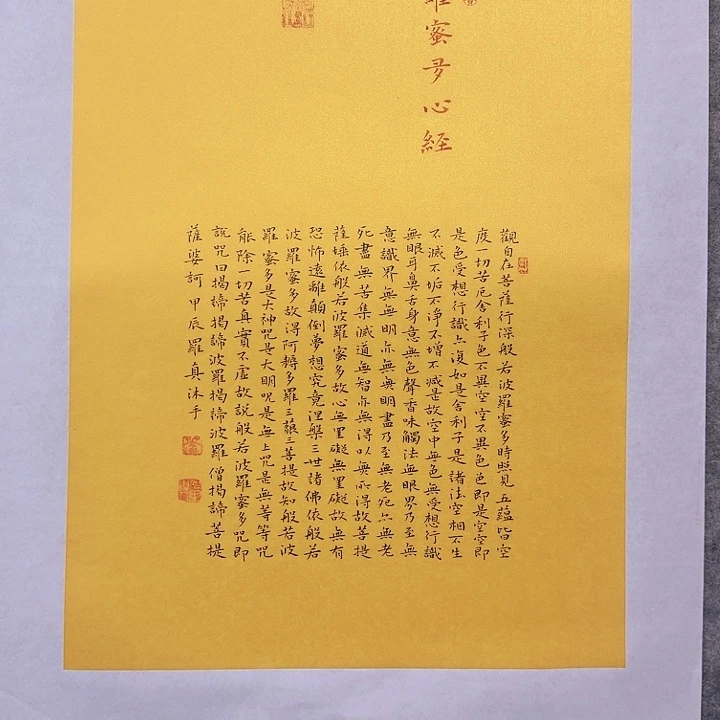 蜜多心經
觀自在菩薩行深般若波羅蜜多時照見五蘊皆空
度一切苦厄舍利子色不異空空不異色色即是空空即
是色受想行識亦復如是舍利子是諸法空相不生
不滅不垢不淨不增不減是故空中無色無受想行識
無眼耳鼻舌身意無色聲香味觸法無眼界乃至無
意識界無無明亦無無明盡乃至無老死亦無老
死盡無苦集滅道無智亦無得以無所得故菩提
薩埵依般若波羅蜜多故心無罣礙無罣礙故無有
恐怖遠離顛倒夢想究竟涅槃三世諸佛依般若
波羅蜜多故得阿耨多羅三藐三菩提故知般若波
羅蜜多是大神咒是大明咒是無上咒是無等等咒
能除一切苦真實不虛故說般若波羅蜜多咒即
說咒曰揭諦揭諦波羅揭諦波羅僧揭諦菩提
薩婆訶 甲辰羅真沐手